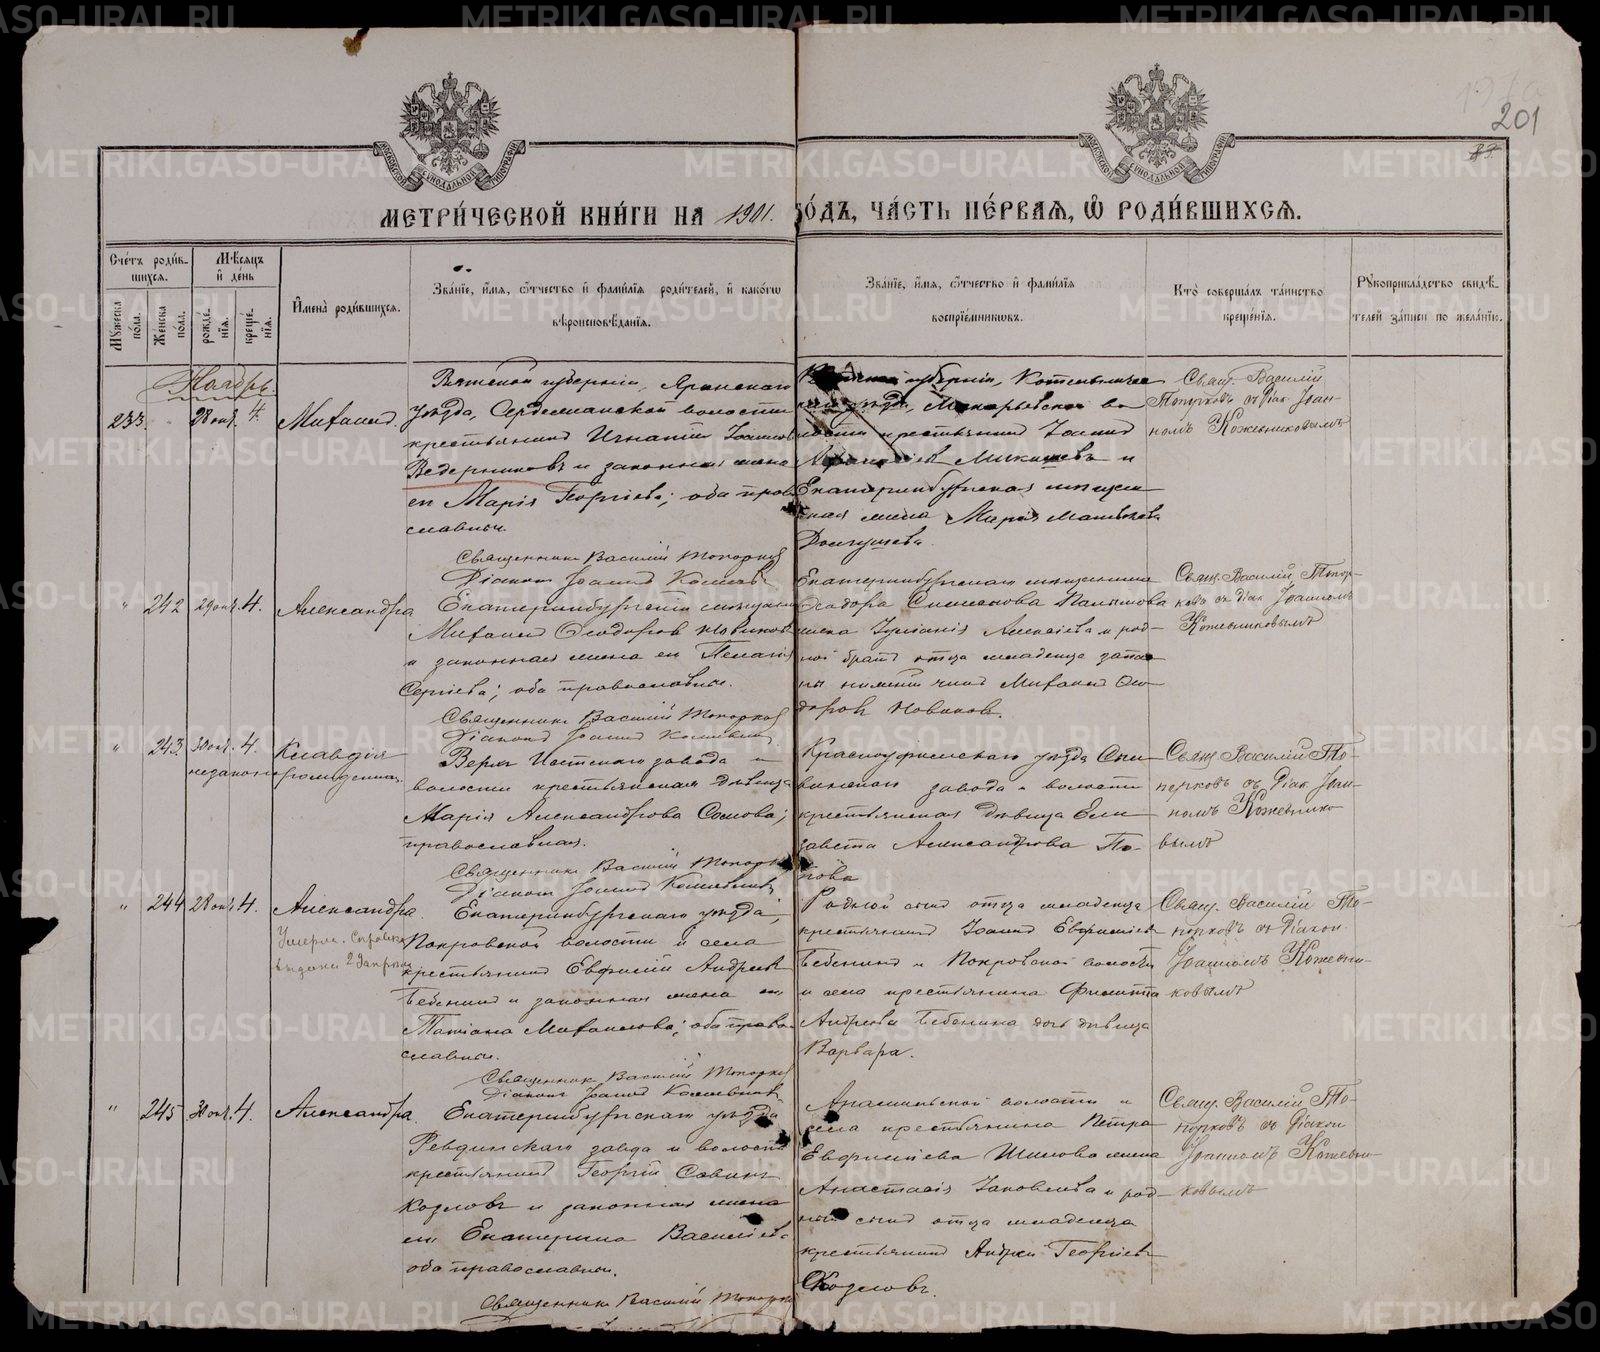 201
МЕТРИ́ЧЕСКОЙ КНИ́ГИ НА 1901. ГОДЪ, ЧА́СТЬ ПЕ́РВАЯ, Ѡ РОДИ́ВШИХСЯ.
Сче́тъ роди́вшихся.
Мѣ́сяцъ и де́нь
Мꙋжеска по́ла.
Же́нска по́ла.
рожде́нїя.
креще́нїя.
И҆мена̀ роди́вшихся.
Зва́нїе, и҆́мя, ѻ҆́тчество и҆ фами́лїя роди́телей, и҆ како́гѡ вѣроисповѣ́данїя.
Зва́нїе, и҆́мя, ѻ҆́тчество и҆ фами́лїя воспрїе́мникѡвъ.
Кто̀ соверша́лъ та́инство креще́нїя.
Рꙋкоприкла́дство свидѣ́телей за́писи по жела́нїю.
Ноябрь
233. 28 окт. 4. Михаилъ.
Вятской губерніи, Яранскаго
уѣзда, волости
крестьянинъ Игнатій Іоанновъ
Ведерниковъ и законная жена
ея Марія Георгіева; оба право
славные.
Священникъ Василій Топорковъ
Діаконъ Іоаннъ Кожевниковъ
губерніи, Котельничес
каго уѣзда, Макарьевской во
лости крестьянинъ Іоаннъ
Микишевъ и
Екатеринбургская мѣщан
ская жена Марія Матвѣева
Долгушева.
Свящ. Василій
Топорковъ съ діак. Іоан-
номъ Кожевниковымъ
" 242 29 окт. 4. Александра
Екатеринбургскій мѣщанинъ
Михаилъ Ѳеодоровъ Новиковъ
и законная жена ея Пелагія
Сергіева; оба православные.
Священникъ Василій Топорковъ
Діаконъ Іоаннъ Кожевниковъ
Екатеринбургскаго мѣщанина
Ѳеодора Симеонова
жена Іуліанія Алексіева и род-
ной братъ отца младенца запас
ный нижній чинъ Михаилъ Ѳео
доровъ Новиковъ.
Свящ. Василій Топор-
ковъ съ діак. Іоанномъ
Кожевниковымъ
" 243. 30 окт. 4. Клавдія
незаконнорожденная.
Верхъ Исетскаго завода и
волости крестьянская дѣвица
Марія Александрова Сомова;
православная.
Священникъ Василій Топорковъ
Діаконъ Іоаннъ Кожевниковъ
Красноуфимскаго уѣзда Сы
винскаго завода и волости
крестьянская дѣвица Ели
завета Александрова По-
пова
Свящ. Василій То-
порковъ съ діак. Іоан-
номъ Кожевнико
вымъ
" 244 28 окт. 4. Александра.
Умерла. Справка
выдана
Екатеринбургскаго уѣзда,
Покровской волости и села
крестьянинъ Евфимій Андреевъ
Бебенинъ и законная жена его
Татіана Михаилова; оба право-
славные.
Священникъ Василій Топорковъ
Діаконъ Іоаннъ Кожевниковъ
Родной сынъ отца младенца
крестьянинъ Іоаннъ Евфиміевъ
Бебенинъ и Покровской волости
и села крестьянина Филиппа
Андреева Бебенина дочь дѣвица
Варвара.
Свящ. Василій То-
порковъ съ діакон.
Іоанномъ Кожевни-
ковымъ
" 245 30 окт. 4. Александра.
Екатеринбургскаго уѣзда
Ревдинскаго завода и волости
крестьянинъ Георгій Саввинъ
Козловъ и законная жена
его Екатерина Василіева
оба православные.
Священникъ Василій Топорковъ
Арамильской волости и
села крестьянина Петра
Евфиміева Шилова жена
Анастасія Іаковлева и род-
ный сынъ отца младенца
крестьянинъ Андрей Георгіевъ
Козловъ.
Свящ. Василій То-
порковъ съ діакон
Іоанномъ Кожевни-
ковымъ
METRIKI.GASO-URAL.RU